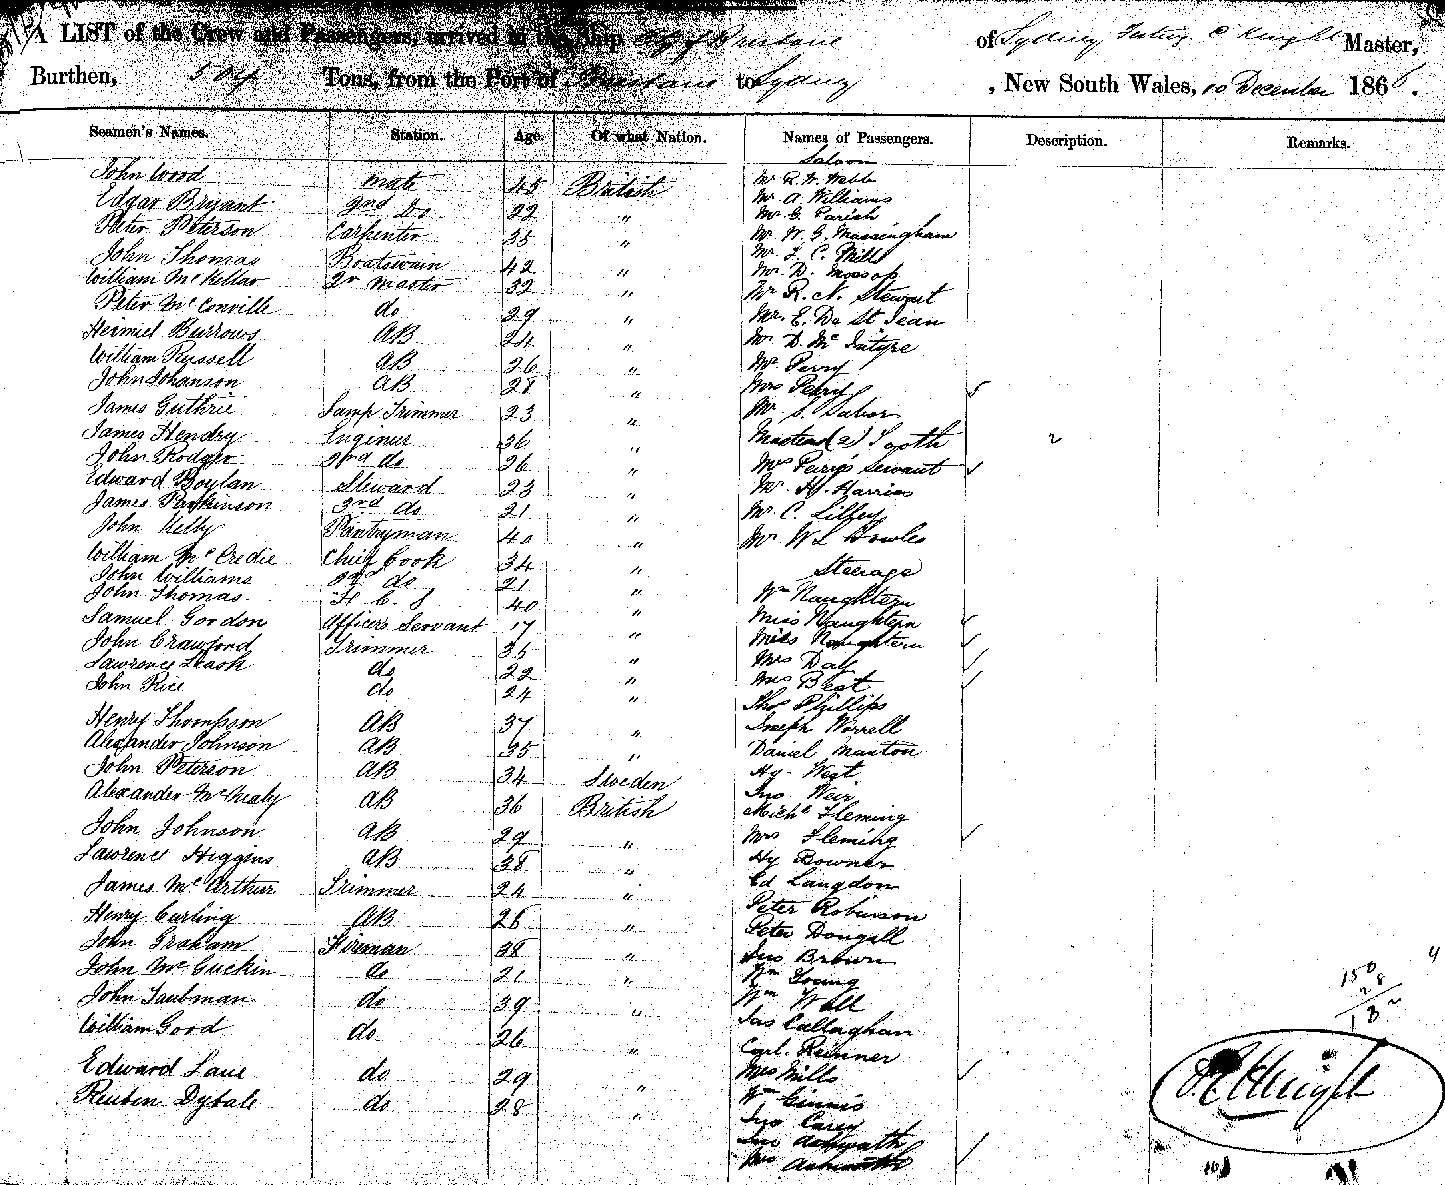 A LIST of the Crew and Passengers, arrived in the Ship City of Brisbane of Sydney, C Knight Master,
Burthen, 504 Tons, from the Port of Brisbane to Sydney, New South Wales, 10 December 186
Seamen's Names. Station. Age. Of what Nation. Names of Passengers. Description. Remarks.
Saloon
John Wood Mate 45 British Mr R. W. Webb
Edgar Bryant 2nd Do 22 " Mr A. Williams
Peter Peterson Carpenter 35 " Mr G. Parish
John Thomas Boatswain 42 " Mr W. G. Massingham
William McKellar Qr Master 32 " Mr C. Mills
Peter McConville do 29 " Mr D. Mossop
Burrows AB 24 " Mr R. N. Stewart
William Russell AB 26 " Mr. E. De St Jean
John Johanson AB 28 " Mr D. McIntyre
James Guthrie Lamp Trimmer 23 " Mr Perry
James Hendry Enginer 36 " Mrs Perry
John Rodger 2nd do 26 " Mr S.
Edward Boylan Steward 23 " (2) Tooth 2
James Parkinson 3rd do 21 " Mrs Perry's Servant
John Kelly Pantryman 40 " Mr. H. Harris
William McCredie Chief Cook 34 " Mr. C. Lilley
John Williams 2nd do 21 " Mr W L Bowles
John Thomas F. C. S 40 " Steerage
Samuel Gordon Officers Servant 17 " Wm Naughtern
John Crawford Trimmer 35 " Miss Naughtern
Lawrence Leask do 22 " Miss Naughtern
John Rice do 24 " Mrs Daly
Mrs Best
Henry Thompson AB 37 " Thos Phillips
Alexander Johnson AB 35 " Joseph Worrell
John Peterson AB 34 Sweden Daniel Manton
Alexander McNealy AB 36 British Hy. West
John Johnson AB 29 " Jno Weir
Lawrence Higgins AB 38 " Michl Fleming
James McArthur Trimmer 24 " Mrs Fleming
Henry Curling AB 26 " Hy Downer
John Graham Fireman 38 " Ed Langdon
John McGuckin do 21 " Peter Robinson
John Taubman do 39 " Peter Dougall
William Good do 26 " Jno Brown
Edward Lane do 29 " Wm Young
Reuben Dybale do 28 " Wm Wall
Jas Callaghan
Carl. Renner
Mrs Mills
Wm Ginnis
Jno Carey
Jno Ashworth
Mrs Ashworth
150
28
Knight